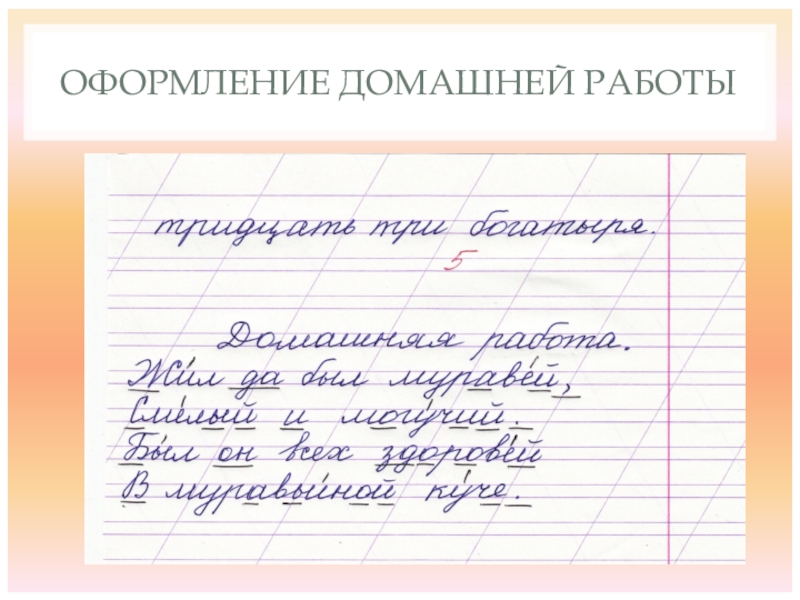 ОФОРМЛЕНИЕ ДОМАШНЕЙ РАБОТЫ
тридцать три богатыря.
5
Домашняя работа.
Жи́л да был мураве́й,
Сме́лый и могу́чий.
Бы́л он всех здорове́й
В муравьи́ной ку́че.